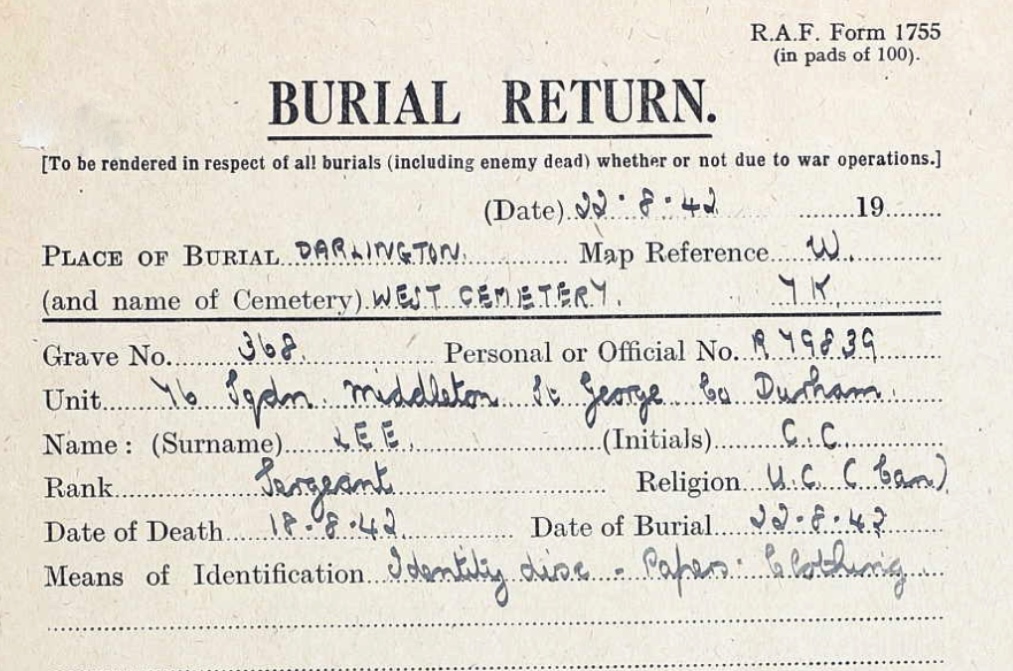 R.A.F. Form 1755
(in pads of 100).
BURIAL RETURN.
[To be rendered in respect of all burials (including enemy dead) whether or not due to war operations.]
(Date) 22.8.42 19
PLACE OF BURIAL DARLINGTON. Map Reference W.
(and name of Cemetery) WEST CEMETERY. YK.
Grave No. 368. Personal or Official No. R 79839
Unit 76 Sqdn. Middleton St George Co Durham.
Name: (Surname) LEE. (Initials) C.C.
Rank Sergeant Religion U.C. (Can)
Date of Death 18.8.42 Date of Burial 22.8.42
Means of Identification Identity disc - Papers. Clothing